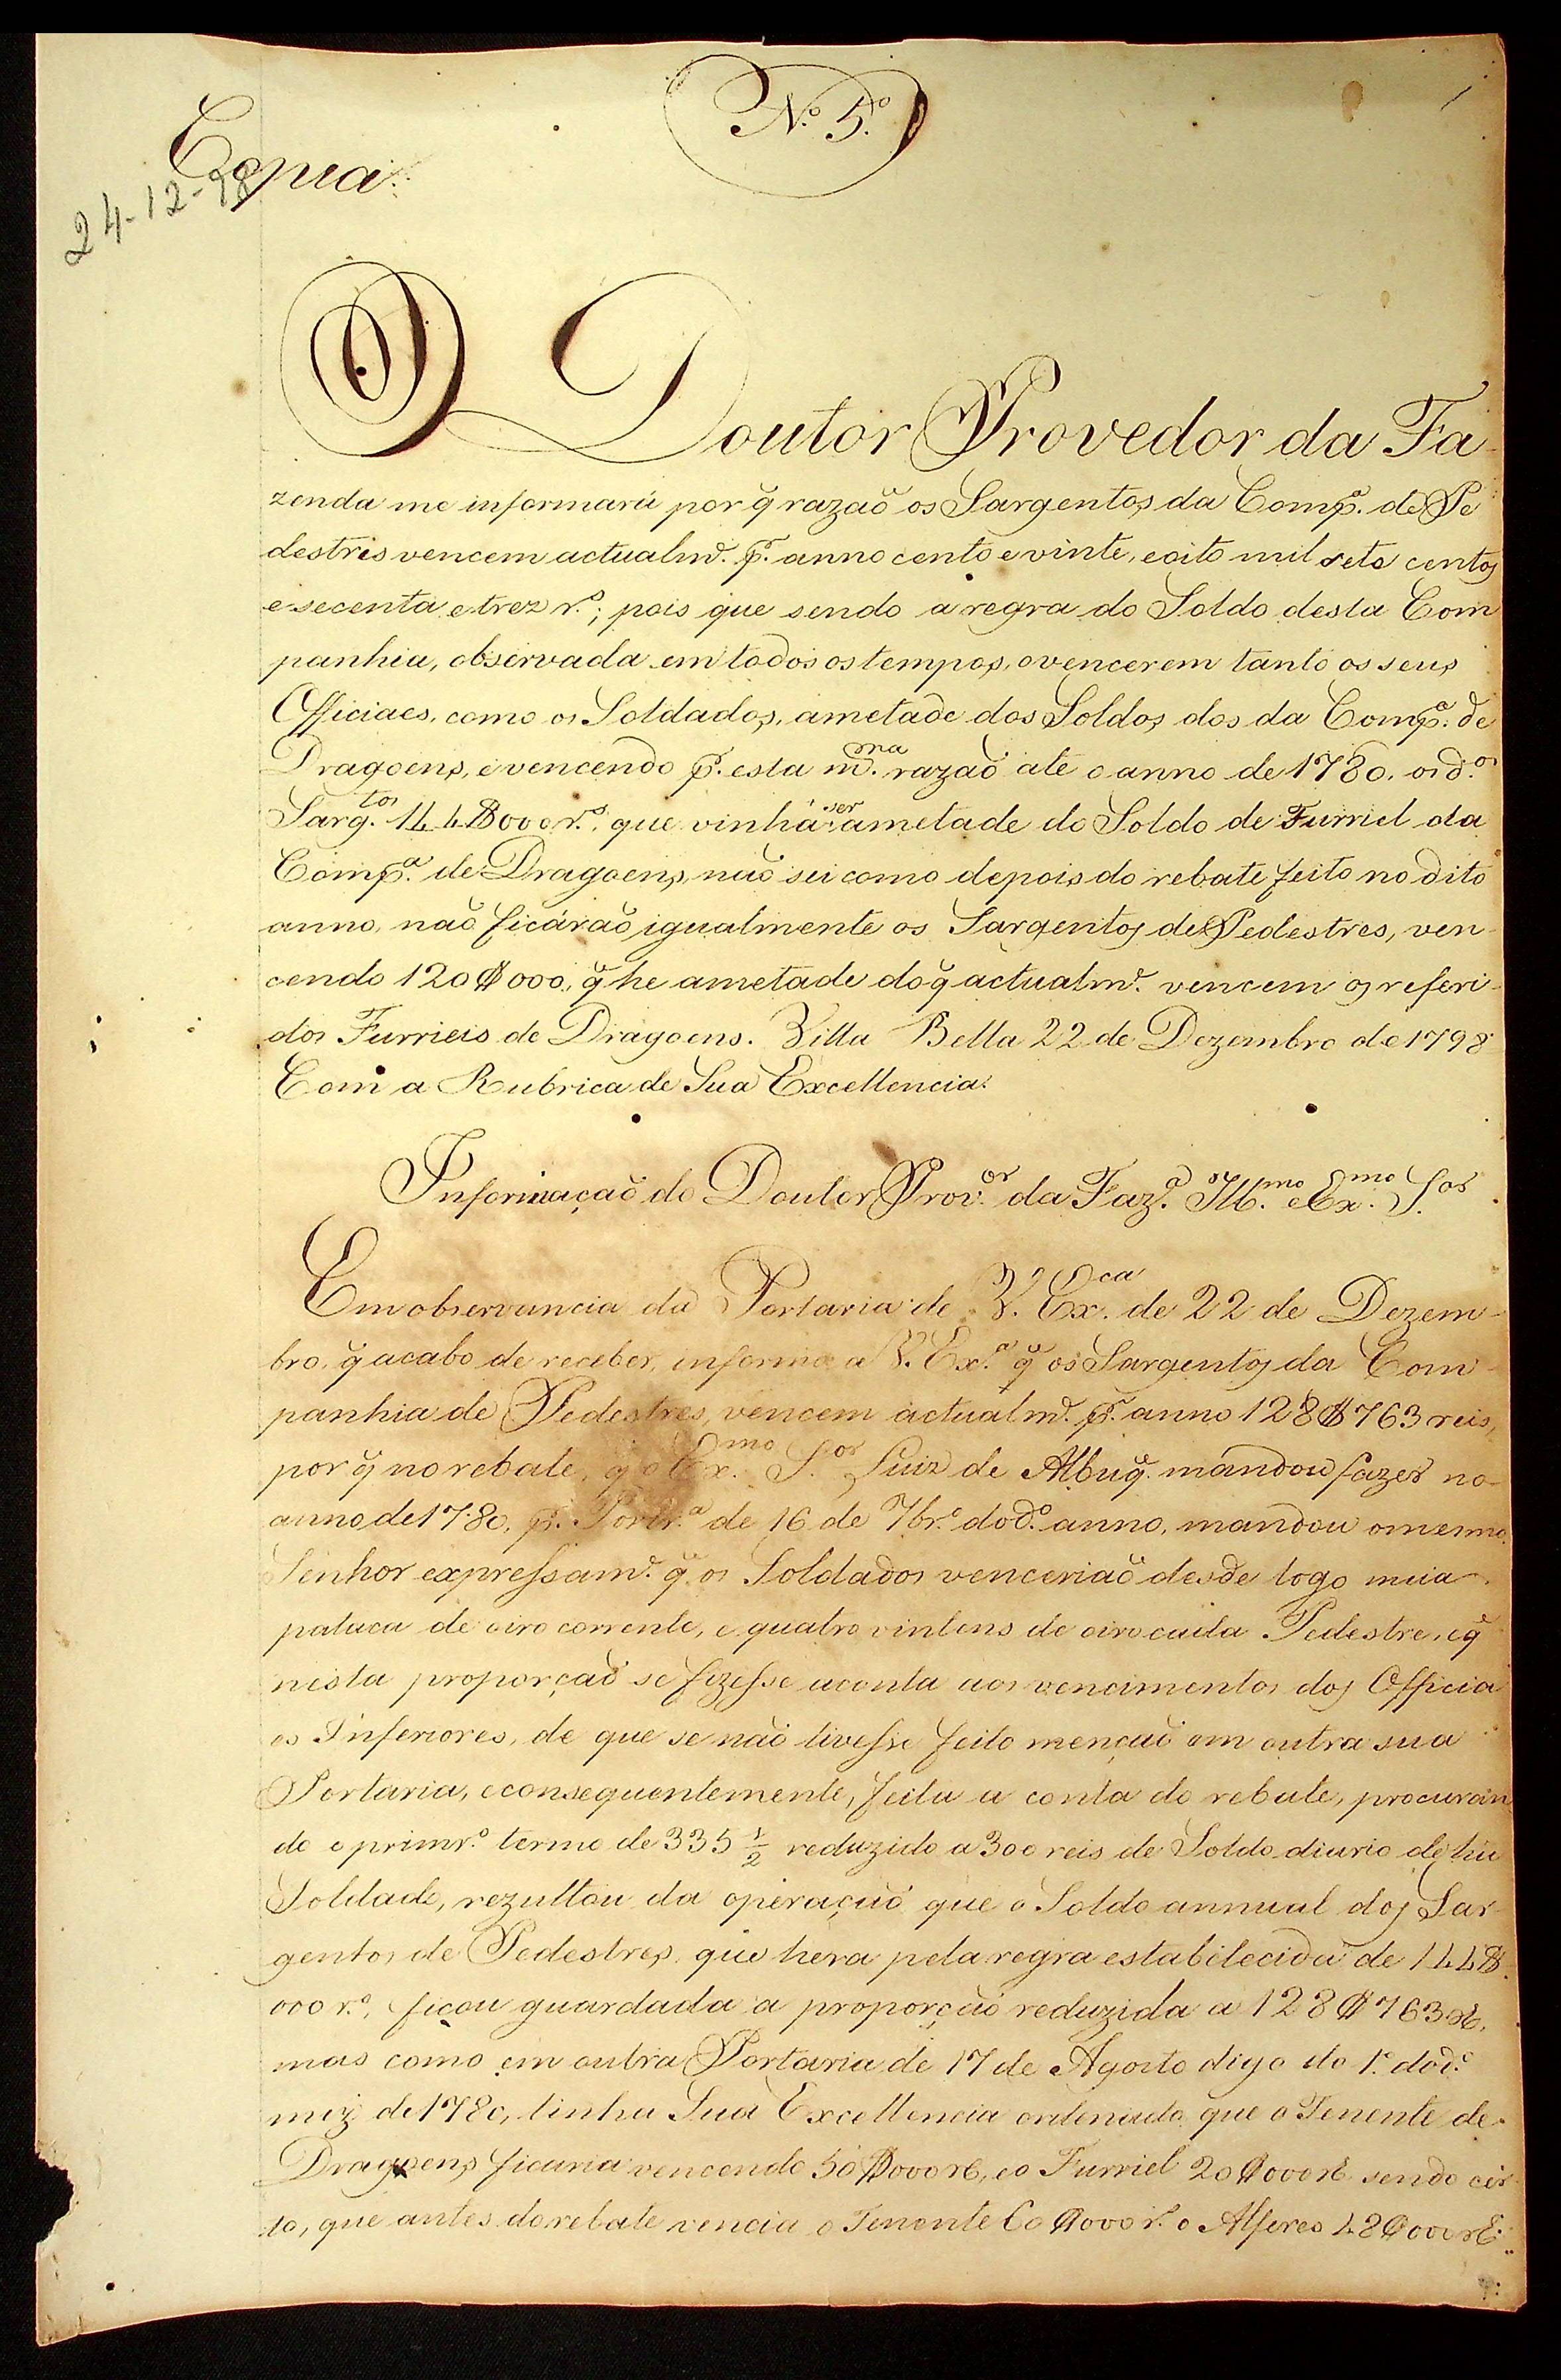 N.º 5.º
Copia.
24-12-98
O Doutor Provedor da Fa-
zenda me informará por q̃ razaõ os Sargentos da Comp.ª de Pe
destres vencem actualm.e p.r anno cento e vinte, e oito mil sete centos
e secenta e trez r.s; pois que sendo a regra do Soldo desta Com
panhia, observada em todos os tempos, o vencerem tanto os seus
Officiaes, como os Soldados, ametade dos Soldos dos da Comp.ª de
Dragoens, e vencendo p.r esta m.ma razaõ até o anno de 1780. os d.os
Sarg.tos 144$000 r.s, que vinhá ser ametade do Soldo de Furriel da
Comp.ª de Dragoens, naõ sei como depois do rebate feito no dito
anno, naõ ficáraõ igualmente os Sargentos de Pedestres, ven-
cendo 120$000, q̃ he ametade do q̃ actualm.e vencem os referi-
dos Furrieis de Dragoens. Villa Bella 22 de Dezembro de 1798
Com a Rubrica de Sua Excellencia.
Informaçaõ do Doutor Prov.or da Faz.ª Ill.mo e Ex.mo S.or
Em observancia da Portaria de V. Ex.ca de 22 de Dezem-
bro, q̃ acabo de receber, informo a V. Ex.ª q̃ os Sargentos da Com-
panhia de Pedestres, vencem actualm.e p.r anno 128$763 reis,
por q̃ no rebate, q̃ o Ex.mo S.or Luiz de Albuq.e mandou fazer no
anno de 1780, p.r Portr.ª de 16 de 7br.º do d.º anno, mandou o mesmo
Senhor expressam.e q̃ os Soldados venceriaõ desde logo meia
pataca de oiro corrente, e quatro vintens de oiro cada Pedestre, e q̃
nesta proporçaõ se fizesse a conta aos vencimentos dos Officia
es Inferiores, de que se naõ tivesse feito mençaõ em outra sua
Portaria, e consequentemente, feita a conta do rebate, procuran
do o primr.º termo de 335 1/2 reduzido a 300 reis de Soldo diario de hũ
Soldado, rezultou da operaçaõ que o Soldo annual dos Sar-
gentos de Pedestres, que hera pela regra estabelecida de 144$
000 r.s, ficou guardada a proporçaõ reduzida a 128$763 r.s,
mas como em outra Portaria de 17 de Agosto digo do 1.º do d.º
mez de 1780, tinha Sua Excellencia ordenado que o Tenente de
Dragoens ficaria vencendo 50$000 rs, e o Furriel 20$000 rs sendo cer
to, que antes do rebate vencia o Tenente 60$000 r.s o Alferes 48$000 rs